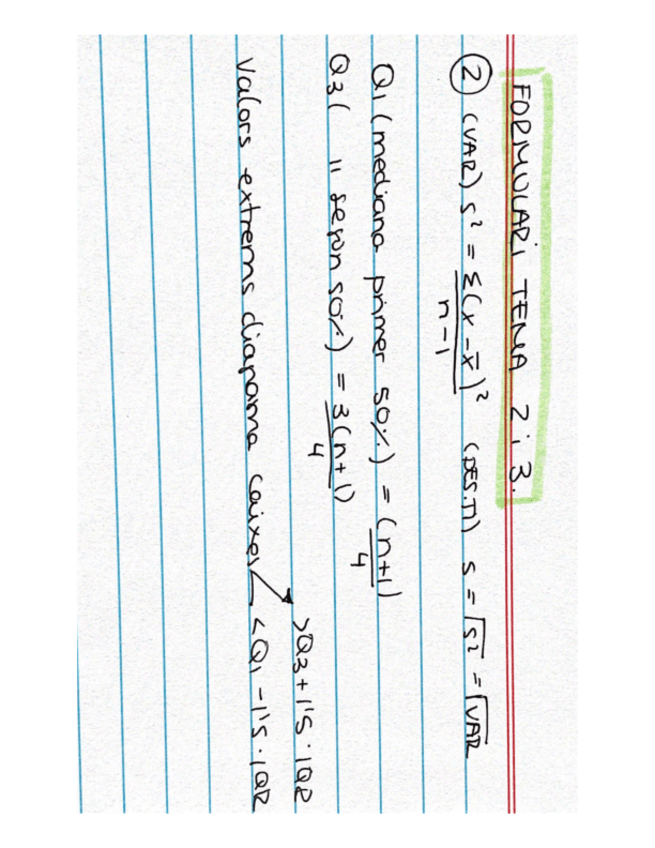 FORMULARi TEMA 2 i 3.
② (VAR) s² = Σ(x - x̄)² / n - 1 (DES.TI) s = √s² = √VAR
Q1 (mediana primer 50%) = (n+1) / 4
Q3 ( " segon 50%) = 3(n+1) / 4
>Q3 + 1'5 · IQR
Valors extrems diagrama caixes <Q1 - 1'5 · IQR